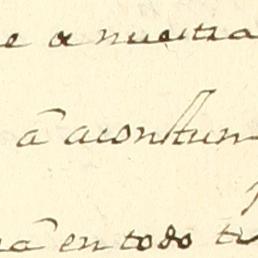 e a nuestra
â acostum
nâ en todo ti